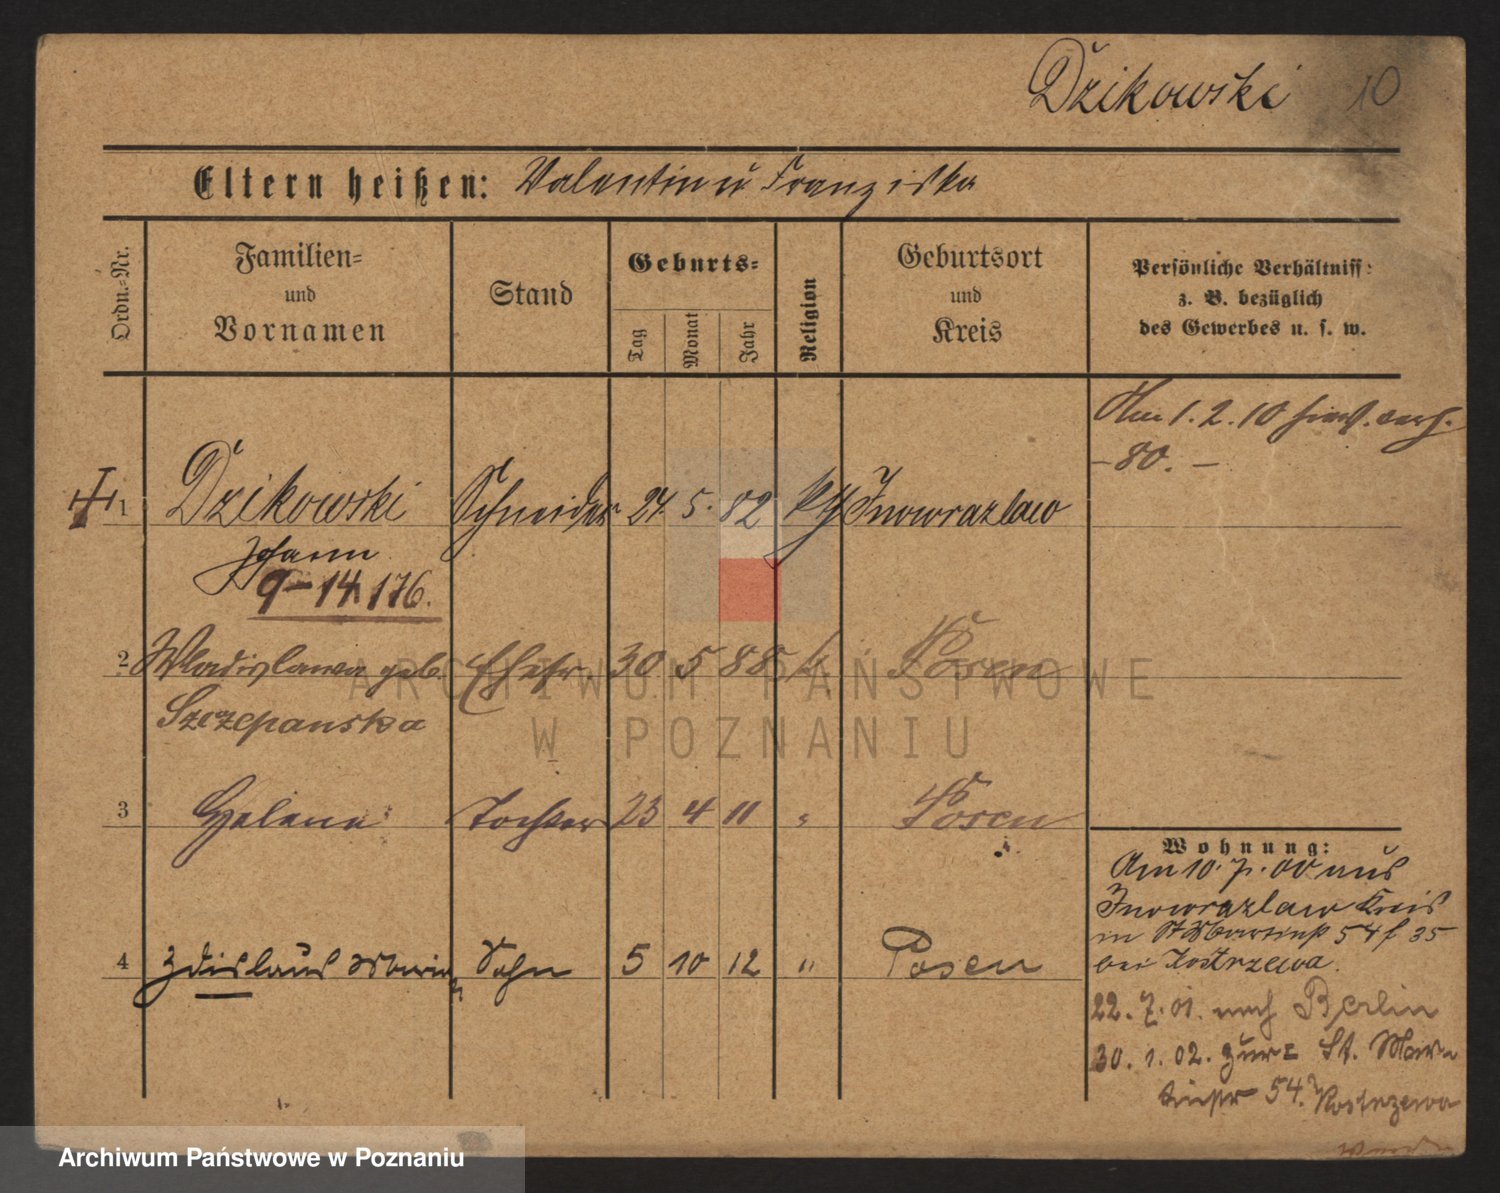 Dzikowski 10
Eltern heißen: Valentin u Franziska
Ordn.-Nr.
Familien-
und
Vornamen
Stand
Geburts-
Tag
Monat
Jahr
Religion
Geburtsort
und
Kreis
Persönliche Verhältniss:
z. B. bezüglich
des Gewerbes u. s. w.
Am 1. 2. 10
- 80. -
1 Dzikowski Schneider 24. 5. 82 kth Inowrazlaw
Johann
9-14 176.
2 Wladislawa geb. Ehefr. 30 5 88 k Posen
Szczepanska
3 Helene Tochter 23 4 11 " Posen
4 Zdislaus Maria Sohn 5 10 12 " Posen
Wohnung:
Am 10. 7. 00 aus
Inowrazlaw Kreis
in St Martinstr 54 35
bei Kostrzewa.
22. 7. 01. nach Berlin
30. 1. 02. zur= St. Mar-
tinstr 54. Kostrzewa
ARCHIWUM PAŃSTWOWE
W POZNANIU
Archiwum Państwowe w Poznaniu